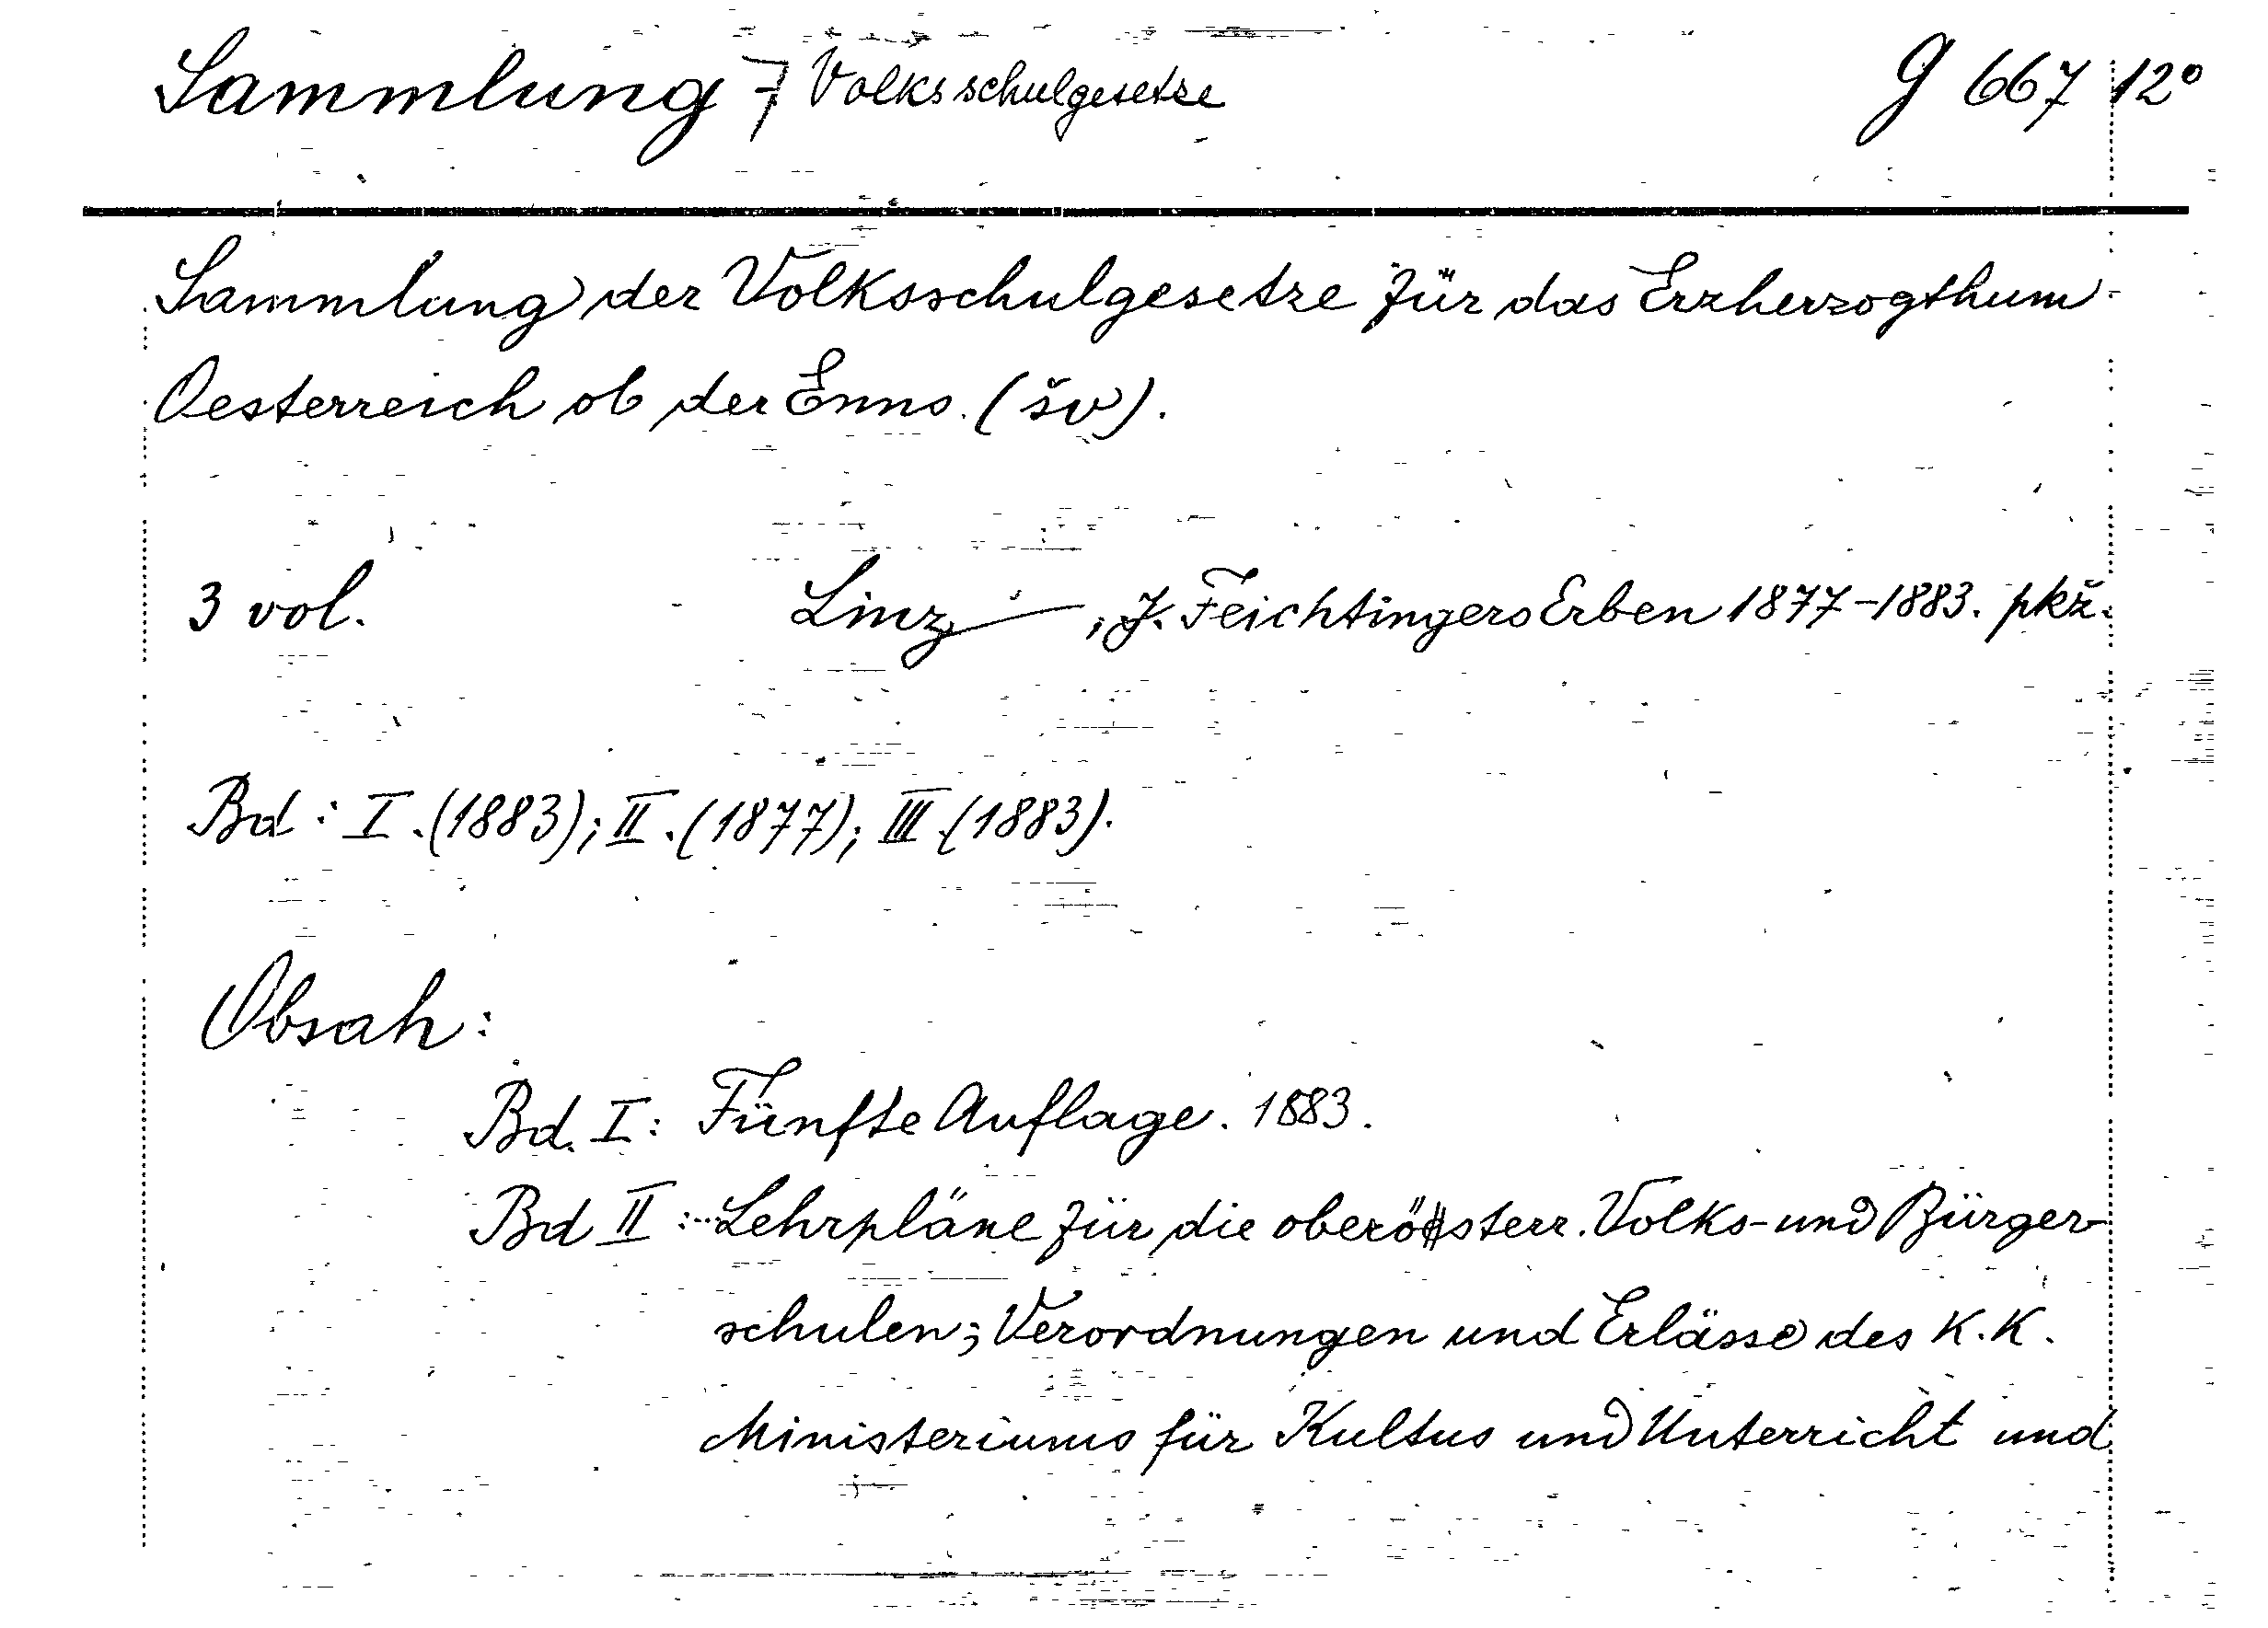 Sammlung 7 Volksschulgesetze G 667 12°
Sammlung der Volksschulgesetze für das Erzherzogthum
Oesterreich ob der Enns. (šv).
3 vol. Linz, J. Feichtingers Erben 1877-1883. pkž.
Bd: I. (1883); II. (1877); III (1883).
Obsah:
Bd. I: Fünfte Auflage. 1883.
Bd II: Lehrpläne für die oberösterr. Volks- und Bürger-
schulen; Verordnungen und Erlässe des K.K.
Ministeriums für Kultus und Unterricht und